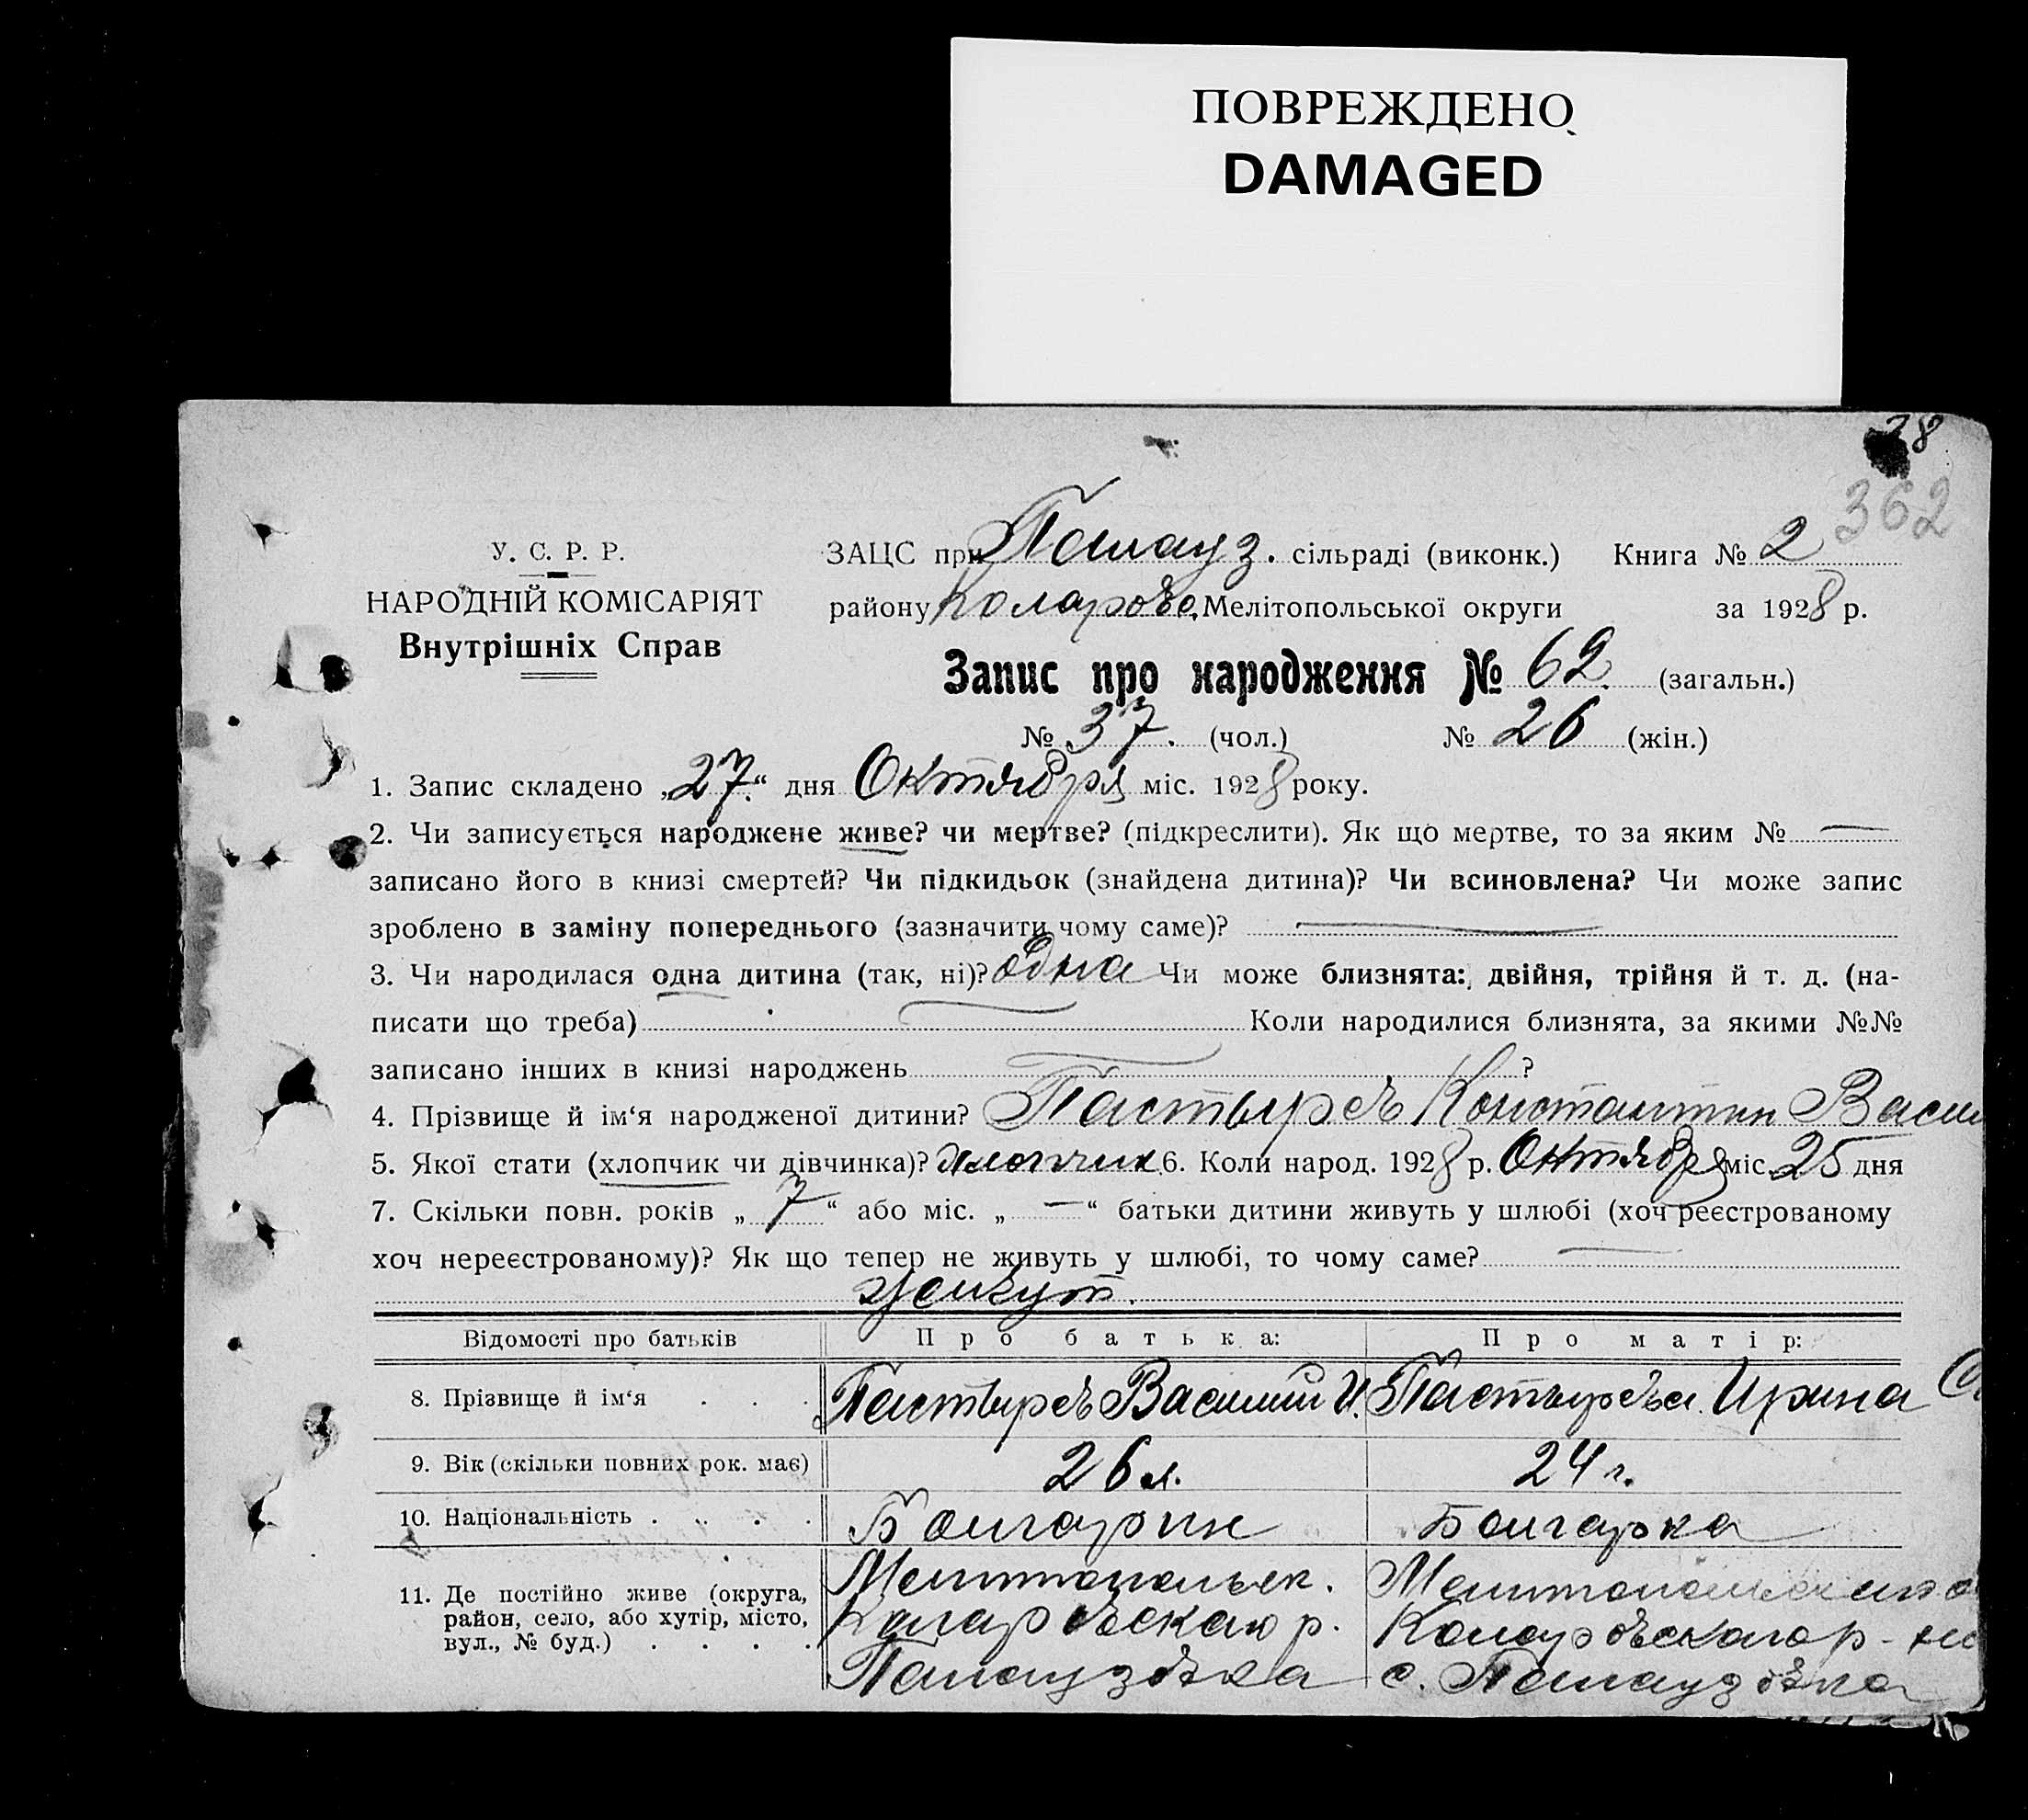 ПОВРЕЖДЕНО
DAMAGED
28
362
У. С. Р. Р.
НАРОДНІЙ КОМІСАРІЯТ
Внутрішніх Справ
ЗАЦС при Палауз. сільраді (виконк.) Книга № 2
району Коларовс. Мелітопольської округи за 1928 р.
Запис про народження № 62. (загальн.)
№ 37. (чол.) № 26 (жін.)
1. Запис складено „27.“ дня Октября міс. 1928 року.
2. Чи записується народжене живе? чи мертве? (підкреслити). Як що мертве, то за яким № —
записано його в книзі смертей? Чи підкидьок (знайдена дитина)? Чи всиновлена? Чи може запис
зроблено в заміну попереднього (зазначити чому саме)? —
3. Чи народилася одна дитина (так, ні)? одна Чи може близнята: двійня, трійня й т. д. (на-
писати що треба) — Коли народилися близнята, за якими №№
записано інших в книзі народжень — ?
4. Прізвище й ім‘я народженої дитини? Пастырев Константин Васи
5. Якої стати (хлопчик чи дівчинка)? хлопчик 6. Коли народ. 1928 р. Октября міс. 25 дня
7. Скільки повн. років „ 7 “ або міс. „ — “ батьки дитини живуть у шлюбі (хоч реєстрованому
хоч нереєстрованому)? Як що тепер не живуть у шлюбі, то чому саме? —
живут.
Відомості про батьків Про батька: Про матір:
8. Прізвище й ім‘я . . . Пастырев Василий И. Пастырева Ирина
9. Вік (скільки повних рок. має) 26 л. 24 г.
10. Національність . . . . Болгарин Болгарка
11. Де постійно живе (округа, район, село, або хутір, місто, вул., № буд.) . . . .
Мелитопольск. Коларовского р. Палаузовка
Коларовского р-на с. Палаузовка